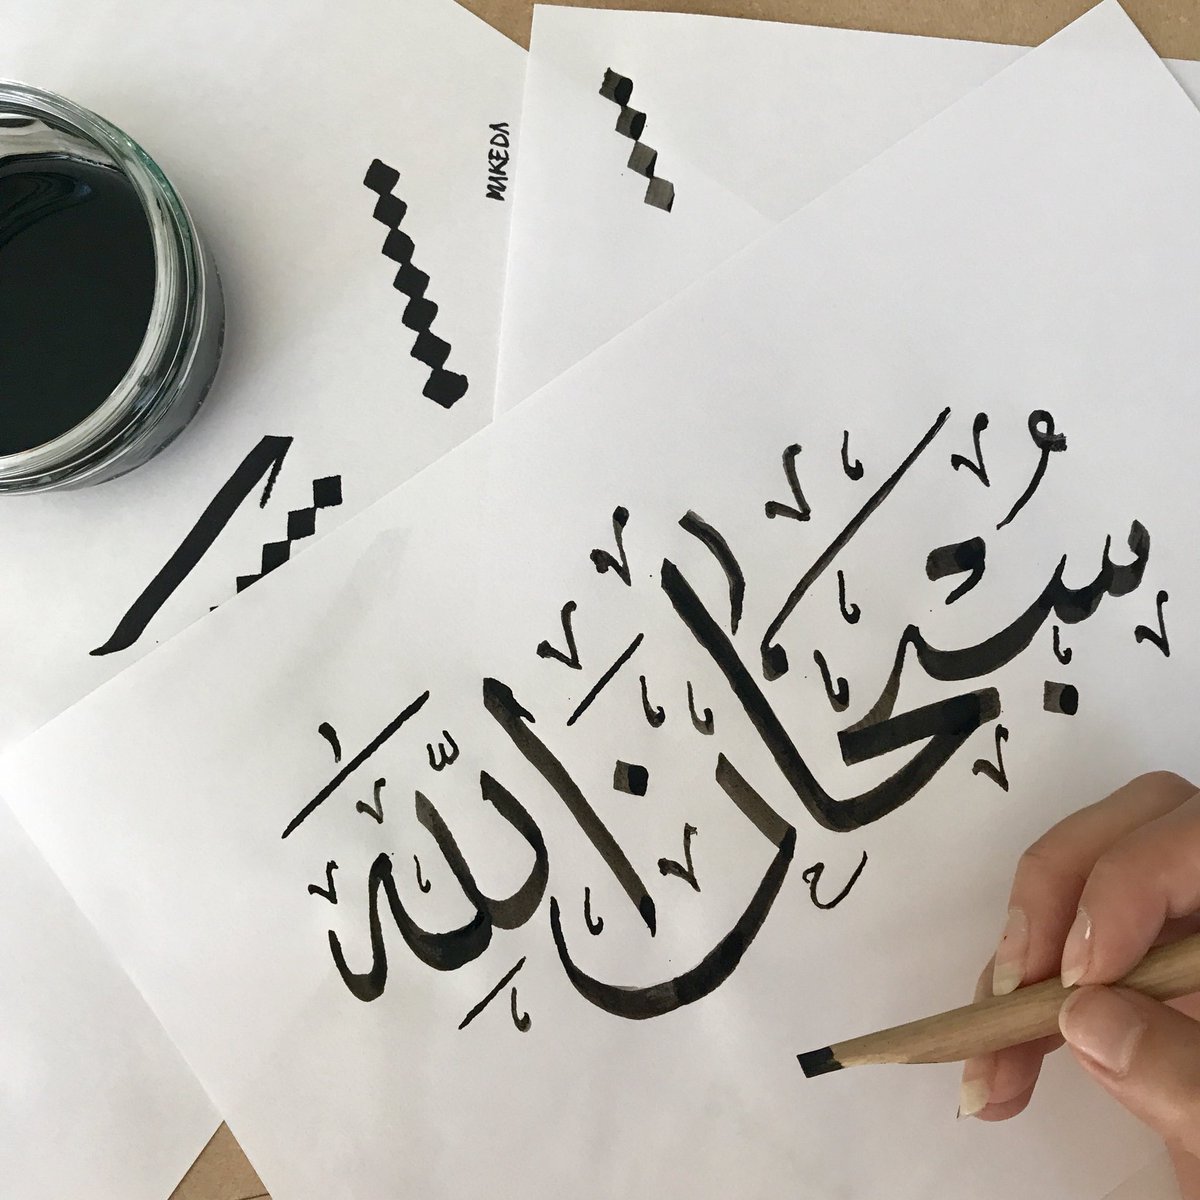 MAKEDA
سُبْحَانَ اللَّهِ